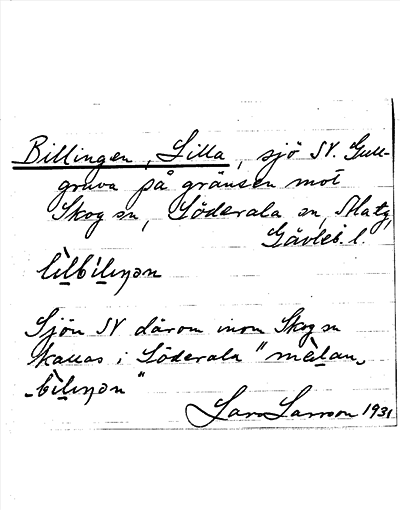 Billingen, Lilla, sjö SV. Gull-
gruva på gränsen mot
Skog sn, Söderala sn,
Gävleb. l.
lìlbílıŋən
Sjön SV därom inom Skog sn
kallas i Söderala "mèlan-
-bìlıŋən"
Lars Larsson 1931